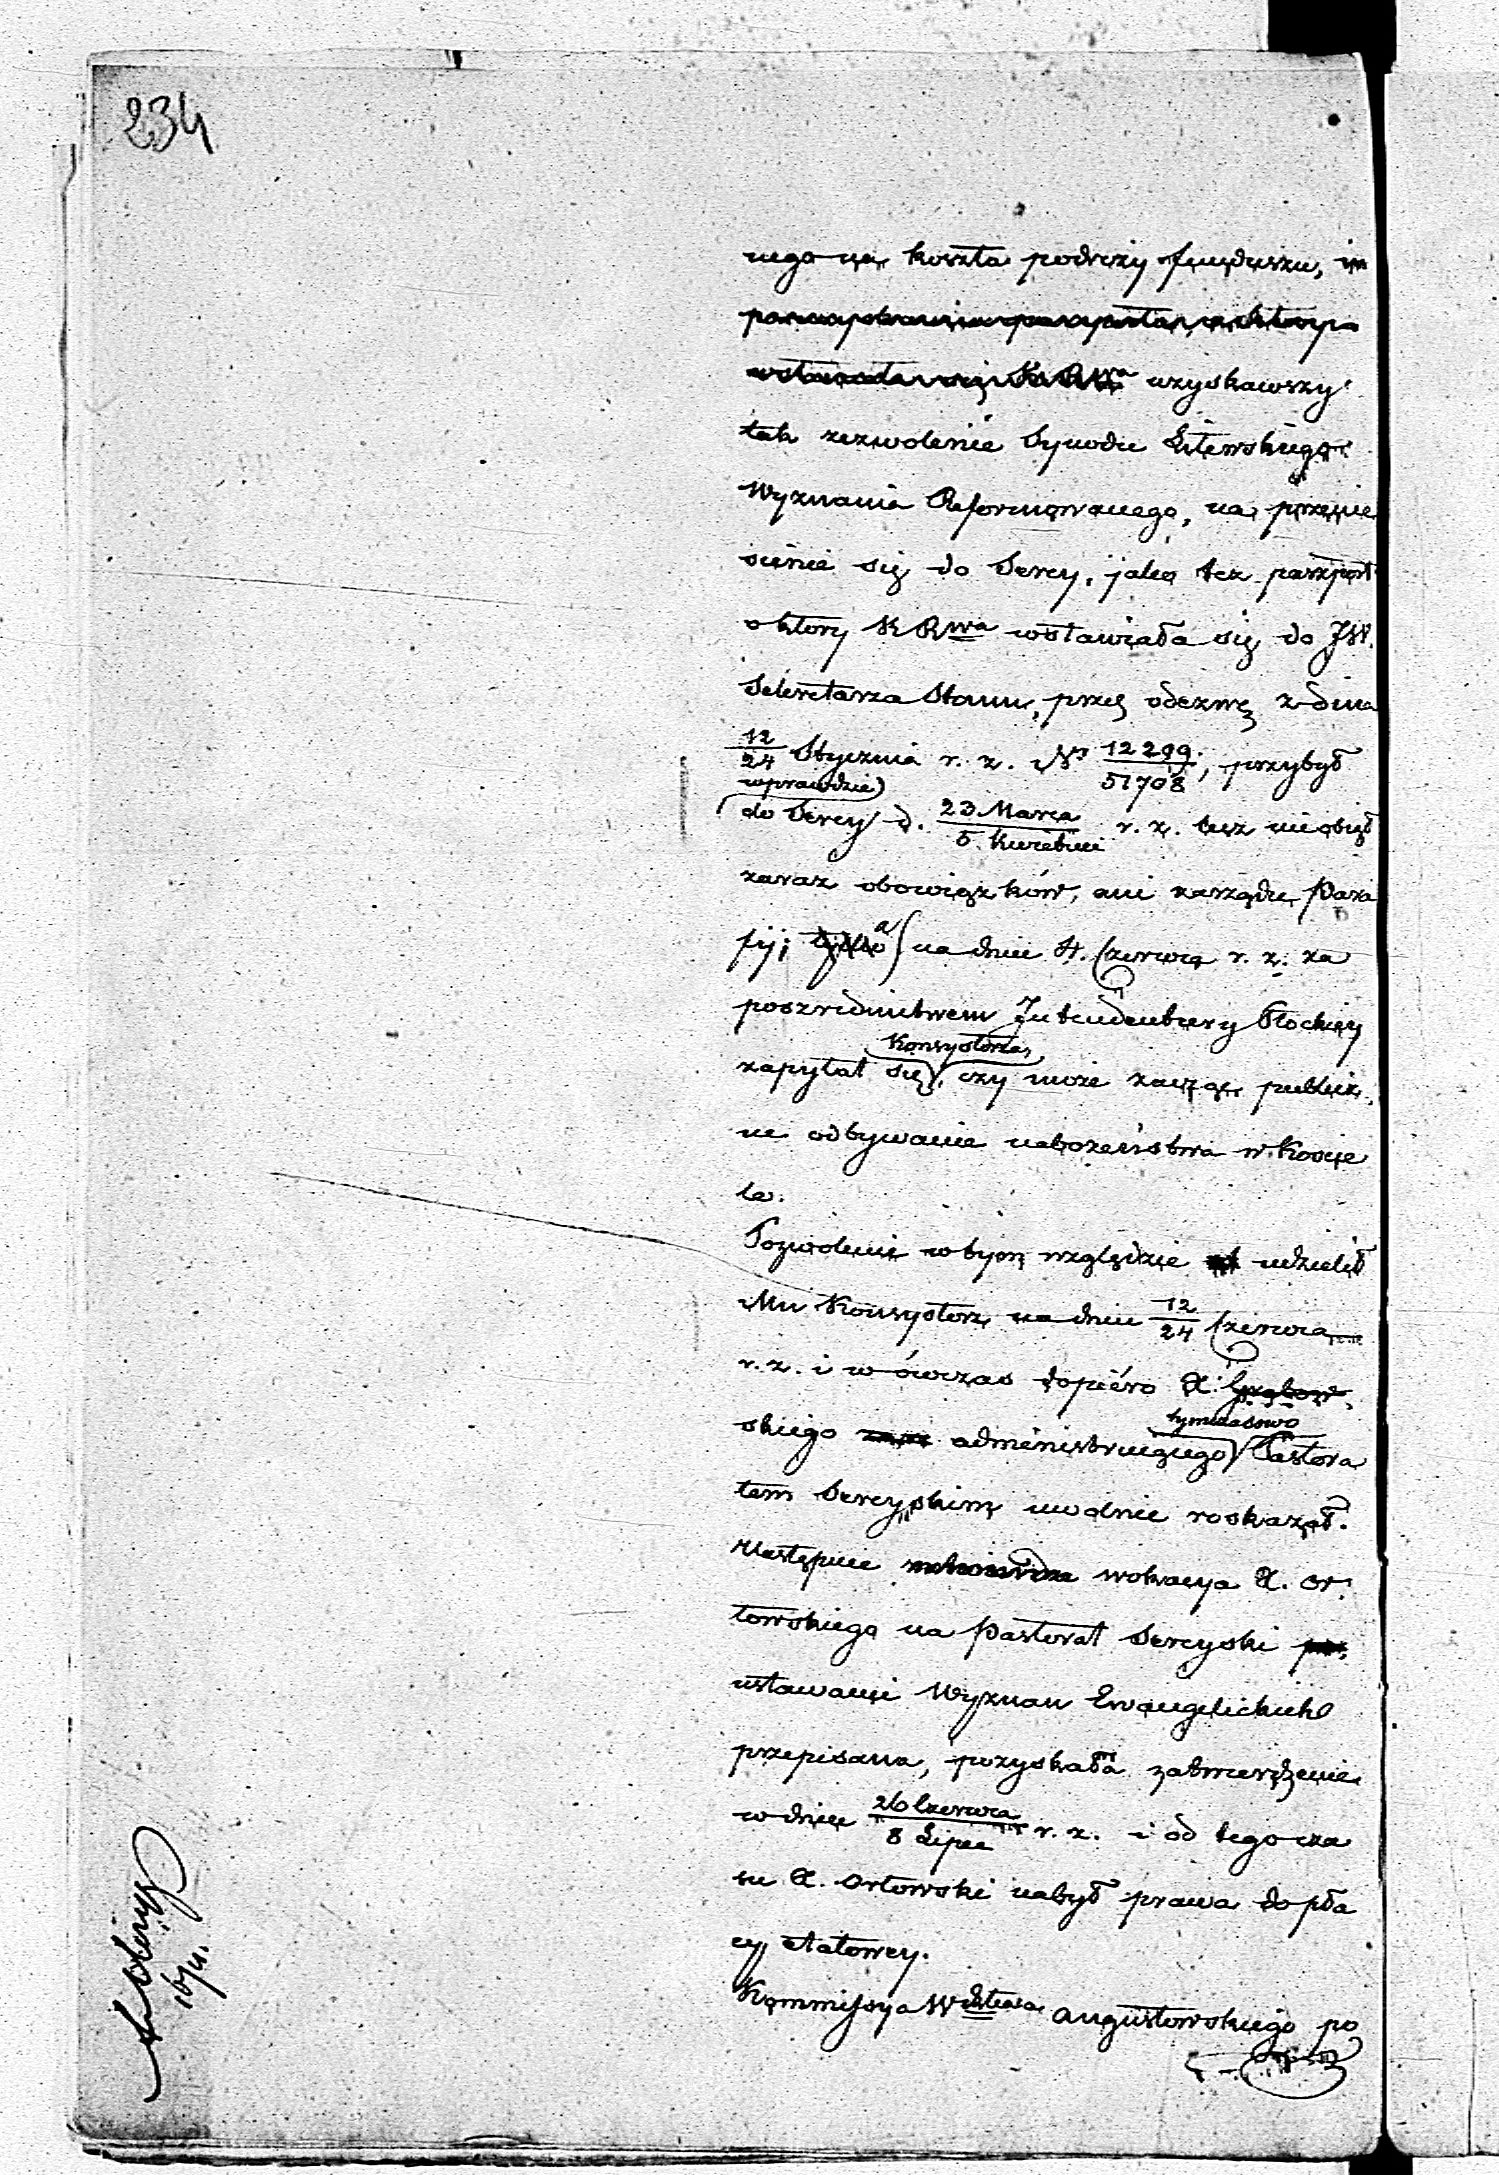 234
nego na koszta podróży funduszu,
KRwa uzyskawszy
tak zezwolenie Synodu Litewskiego
Wyznania Reformowanego, na przenie
sienie się do Serey, jako też paszport
o który KRwa wstawiała się do JW.
Sekretarza Stanu, przez odezwę z dnia
12/24 Stycznia r. z. Nr 12299/51708, przybył
wprawdzie
do Serey d. 23 Marca/5 Kwietnia r. z. lecz nie objął
zaraz obowiązków, ani zarządu Para
fij; tylko a na dniu 4. Czerwca r. z. za
pośrednictwem Intendentury Płockiey
Konsystorza,
zapytał się, czy może zacząć publicz
ne odbywanie nabożeństwa w Koście
le.
Pozwolenie w tym względzie udzielił
Mu Konsystorz na dniu 12/24 Czerwca
r. z. i w ówczas dopiéro X.
tymczasowo
skiego administruiącego Pastora
tem Sereyskim uwolnić roskazał.
Następnie wokacya X. Or
łowskiego na Pastorat Sereyski
ustawami Wyznań Ewangelickich
przepisana, pozyskała zatwierdzenie
w dniu 26 Czerwca/8 Lipca r. z. i od tego cza
su X. Orłowski nabył prawa do pła
cy etatowey.
Kommissya Wdztwa Augustowskiego po